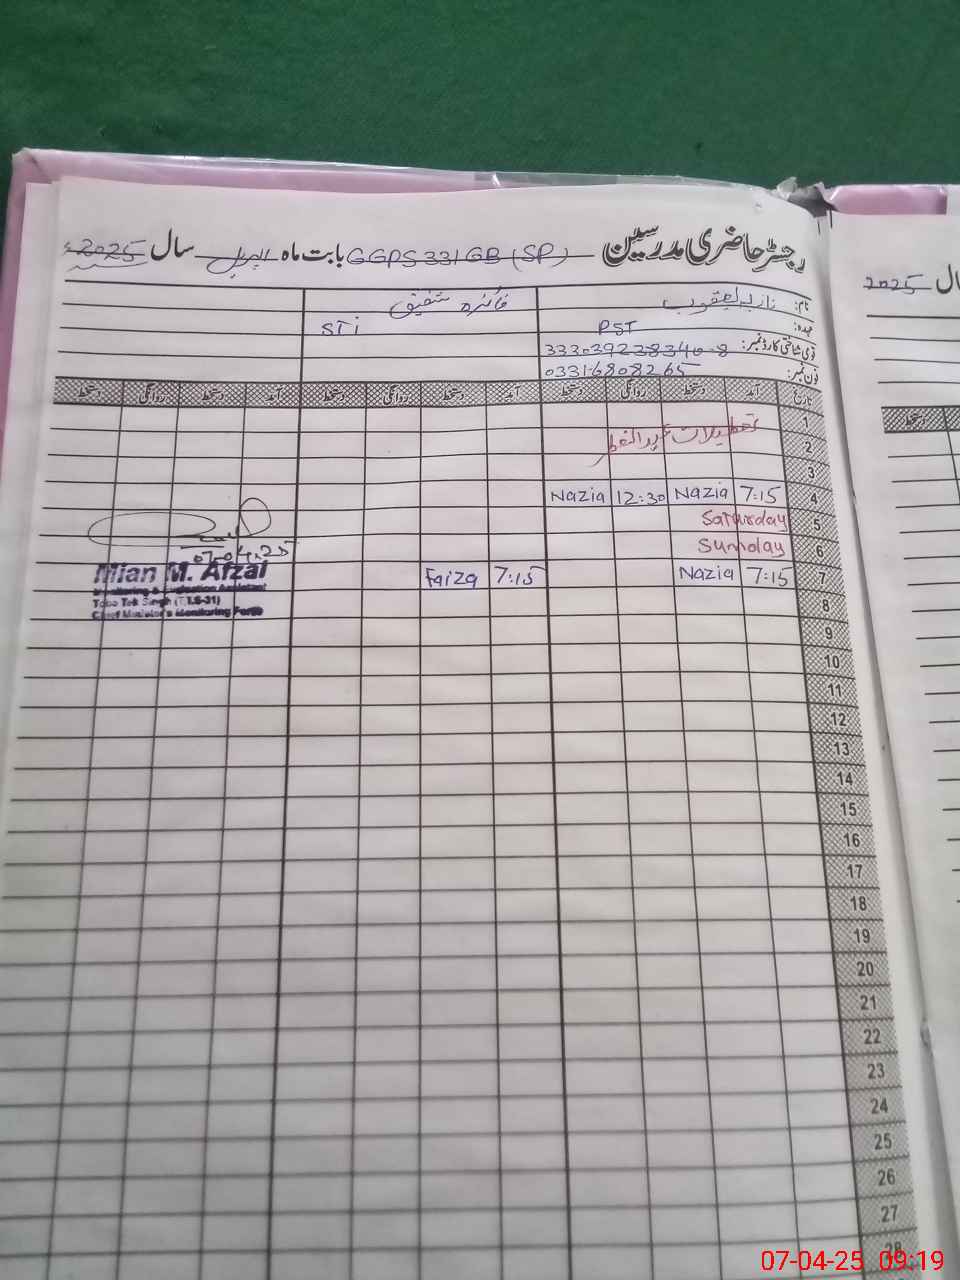 رجسٹر حاضری مدرسین GGPS 331 GB (SP) بابت ماہ اپریل سال 2025ء
نام: نازیہ یعقوب
فائزہ شفیق
عہدہ: PST
STI
قومی شناختی کارڈ نمبر: 333039238340-8
فون نمبر: 03316808265
تاریخ آمد دستخط روانگی دستخط آمد دستخط روانگی دستخط آمد دستخط روانگی دستخط
1
2 تعطیلات عیدالفطر
3
4 7:15 Nazia 12:30 Nazia
5 Saturday
6 Sunday
7 7:15 Nazia 7:15 Faiza
07-04-25
Mian M. Afzal
Monitoring & Evaluation Assistant
Toba Tek Singh (T.T.S-31)
Chief Minister's Monitoring Force
8
9
10
11
12
13
14
15
16
17
18
19
20
21
22
23
24
25
26
27
28
سال 2025
دستخط
07-04-25 09:19